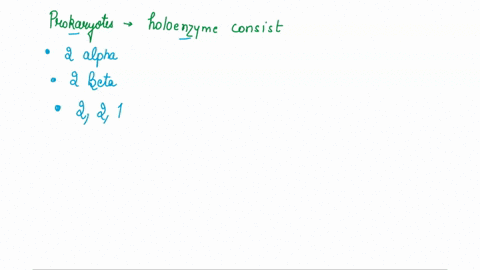 Prokaryotes → holoenzyme consist
• 2 alpha
• 2 beta
• 2, 2, 1